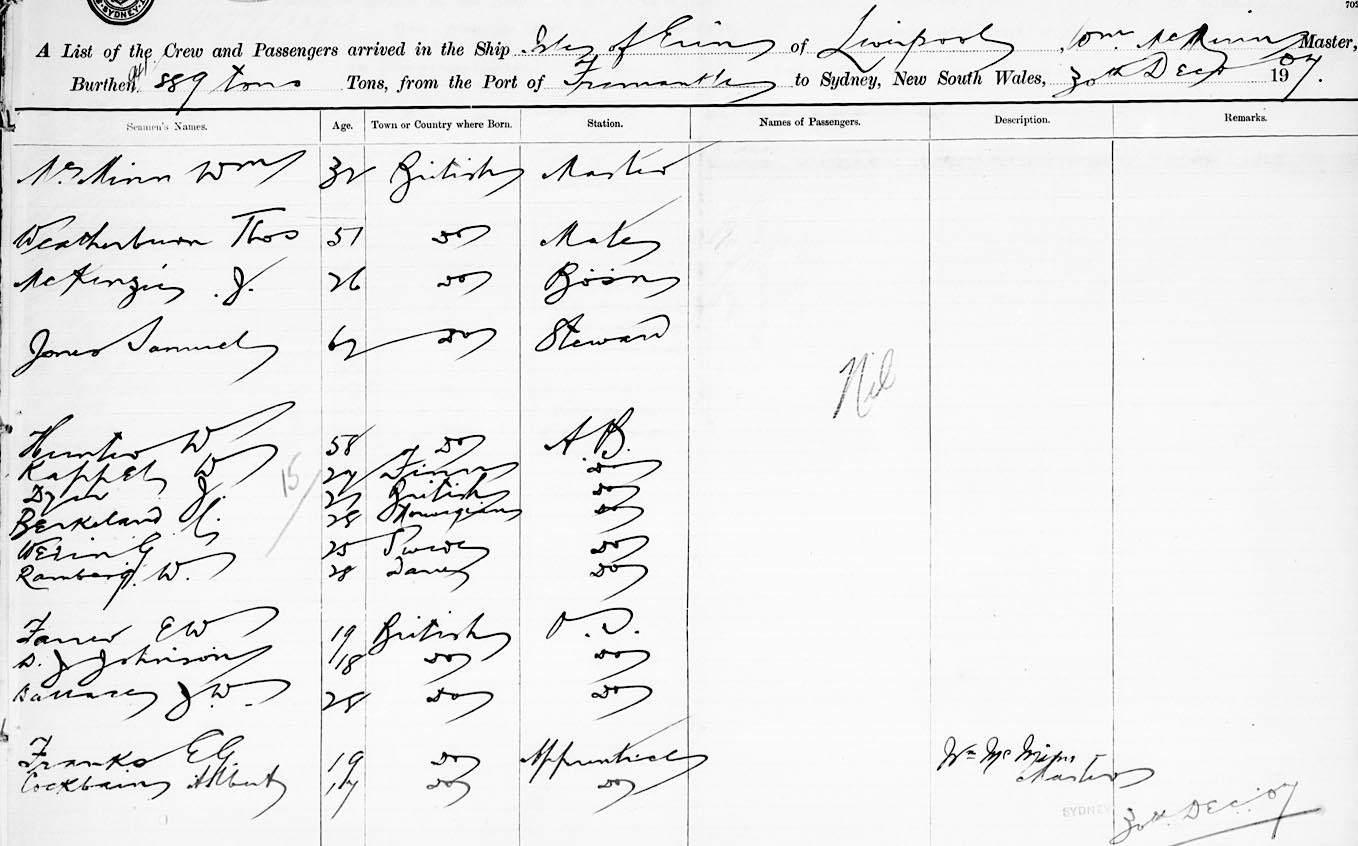 SYDNEY
702
A List of the Crew and Passengers arrived in the Ship Isles of Erin of Liverpool, Wm McMinn Master,
Burthen 889 tons Tons, from the Port of Fremantle to Sydney, New South Wales, 30th Dec 1907.
Seamen's Names. Age. Town or Country where Born. Station. Names of Passengers. Description. Remarks.
McMinn Wm 32 British Master
Weatherburn Thos 51 Do Mate
McKenzie J. 26 Do Bosn
Jones Samuel 62 Do Steward
Nil
Hunter W 58 Do A.B.
Kappel W 27 Finn Do
15
Dyer J. 27 British Do
Berkeland 28 Norwegian Do
Werin G 25 Swede Do
Ramberg W. 28 Dane Do
E W 19 British O.S.
D. J Johnson 18 Do Do
J. W. 28 Do Do
Franks E G 19 Do Apprentice
Cockbain Albert 17 Do Do
Wm McMinn
Master
SYDNEY
30th Dec. 07